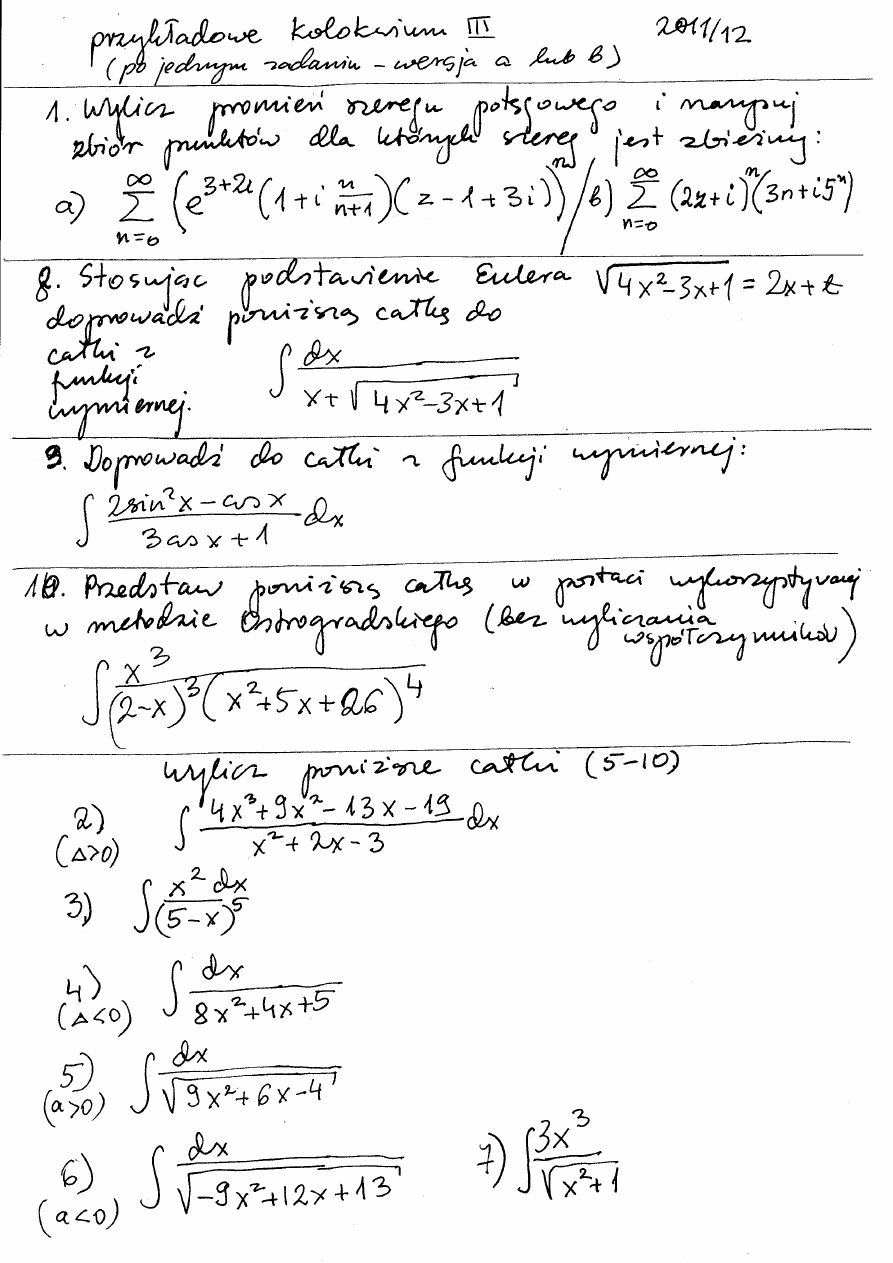 przykładowe kolokwium III 2011/12
(po jednym zadaniu - wersja a lub b)
1. Wylicz promień szeregu potęgowego i narysuj
zbiór punktów dla których szereg jest zbieżny:
a) ∞∑n=0 (e^(3+2i) (1+i n/(n+1)) (z-1+3i))^n / b) ∞∑n=0 (2z+i)^n (3n+i5^n)
8. Stosując podstawienie Eulera √(4x²-3x+1) = 2x+t
doprowadź poniższą całkę do
całki z
funkcji
wymiernej. ∫ dx / (x+√(4x²-3x+1))
9. Doprowadź do całki z funkcji wymiernej:
∫ (2sin²x - cos x)/(3cos x + 1) dx
10. Przedstaw poniższą całkę w postaci wykorzystywanej
w metodzie Ostrogradskiego (bez wyliczania
współczynników)
∫ x³ / ((2-x)³ (x²+5x+26)⁴)
Wylicz poniższe całki (5-10)
2) (Δ>0) ∫ (4x³+9x²-13x-19)/(x²+2x-3) dx
3) ∫ x² dx/(5-x)⁵
4) (Δ<0) ∫ dx/(8x²+4x+5)
5) (a>0) ∫ dx/√(9x²+6x-4)
6) (a<0) ∫ dx/√(-9x²+12x+13)
7) ∫ 3x³/√(x²+1)